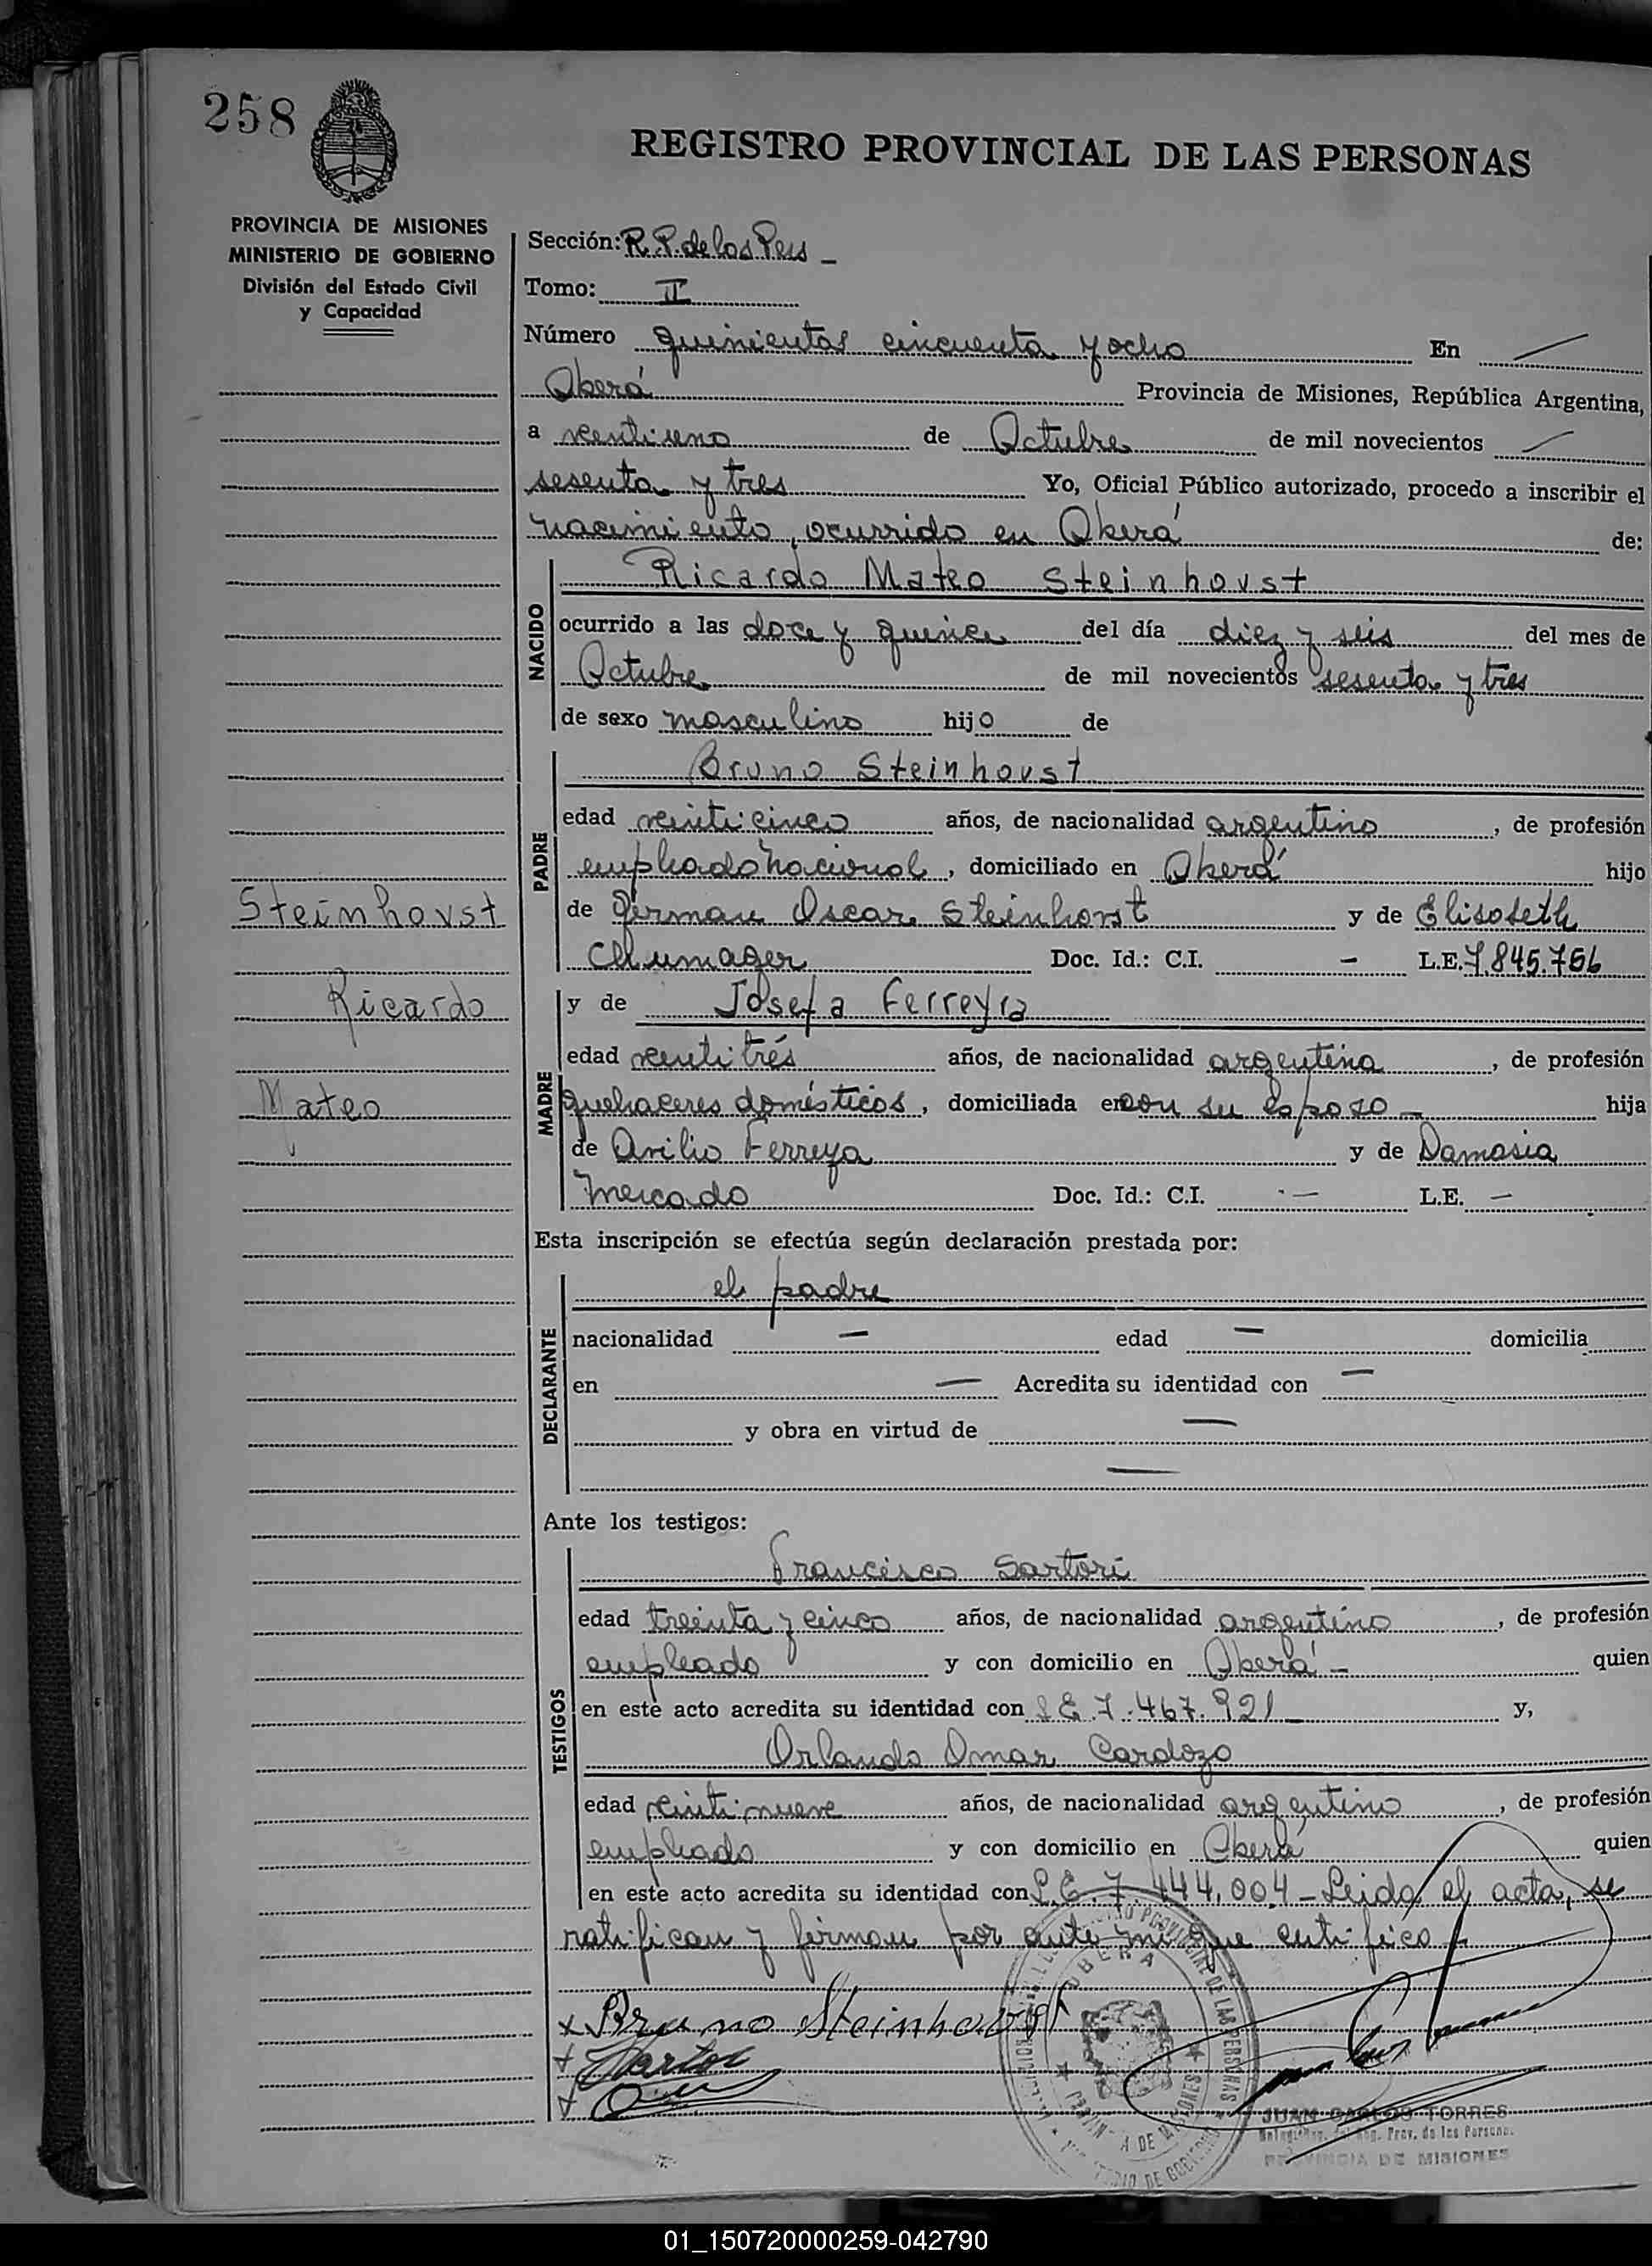 258
REGISTRO PROVINCIAL DE LAS PERSONAS
PROVINCIA DE MISIONES
MINISTERIO DE GOBIERNO
División del Estado Civil
y Capacidad
Sección: R. P. de las Pers -
Tomo: II
Número quinientos cincuenta y ocho En
Oberá Provincia de Misiones, República Argentina,
a veintiuno de Octubre de mil novecientos
sesenta y tres Yo, Oficial Público autorizado, procedo a inscribir el
nacimiento, ocurrido en Oberá de:
NACIDO
Ricardo Mateo Steinhorst
ocurrido a las doce y quince del día diez y seis del mes de
Octubre de mil novecientos sesenta y tres
de sexo masculino hijo de
PADRE
Bruno Steinhorst
edad veinticinco años, de nacionalidad argentino, de profesión
empleado nacional, domiciliado en Oberá hijo
de German Oscar Steinhorst y de Elisabeth
Chumager Doc. Id.: C.I. - L.E. 7.845.756
Steinhorst
Ricardo
Mateo
MADRE
y de Josefa Ferreyra
edad veintitrés años, de nacionalidad argentina, de profesión
quehaceres domésticos, domiciliada en con su esposo - hija
de Avilio Ferreya y de Damasia
Mercado Doc. Id.: C.I. - L.E. -
Esta inscripción se efectúa según declaración prestada por:
DECLARANTE
el padre
nacionalidad - edad - domicilia
en - Acredita su identidad con -
y obra en virtud de -
-
Ante los testigos:
TESTIGOS
Francisco Sartori
edad treinta y cinco años, de nacionalidad argentino, de profesión
empleado y con domicilio en Oberá - quien
en este acto acredita su identidad con L E 7.467.921 y,
Orlando Omar Cardozo
edad veintinueve años, de nacionalidad argentino, de profesión
empleado y con domicilio en Oberá quien
en este acto acredita su identidad con L.E. 7.444.004 - Leida el acta, se
ratifican y firman por ante mi que certifico -
x Bruno Steinhorst
OBERA
JUAN CARLOS TORRES
Prov. de las Personas
PROVINCIA DE MISIONES
01_150720000259-042790